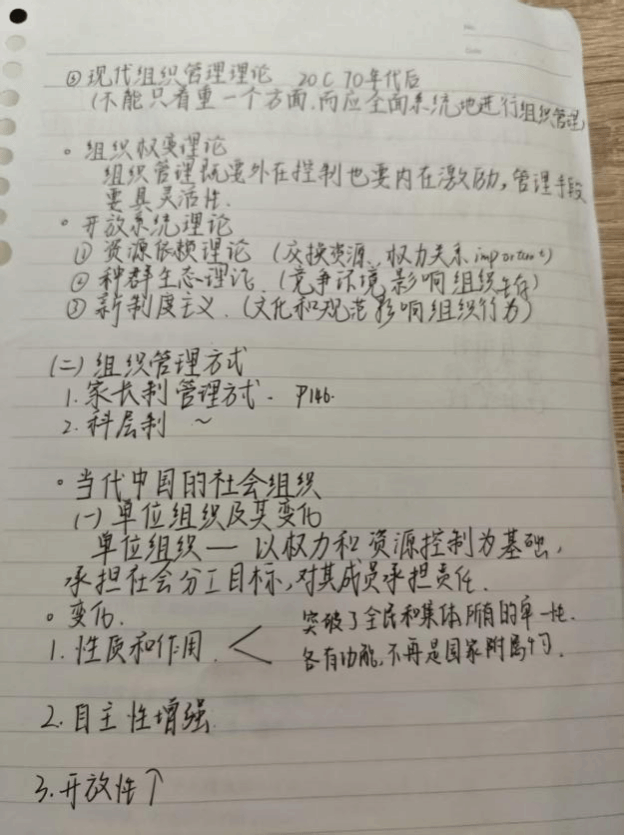 ⑤现代组织管理理论 20C 70年代后
(不能只看重一个方面.而应全面系统地进行组织管理)
。组织权变理论
组织管理既要外在控制也要内在激励,管理手段
要具灵活性.
。开放系统理论
① 资源依赖理论 (交换资源、权力关系important)
② 种群生态理论. (竞争环境影响组织生存)
③ 新制度主义. (文化和规范影响组织行为)
(二)组织管理方式
1. 家长制管理方式. P146.
2. 科层制 ~
。当代中国的社会组织
(一)单位组织及其变化
单位组织— 以权力和资源控制为基础,
承担社会分工目标,对其成员承担责任.
。变化.
1. 性质和作用. < 突破了全民和集体所有的单一性.
各有功能,不再是国家附属物.
2. 自主性增强
3. 开放性↑